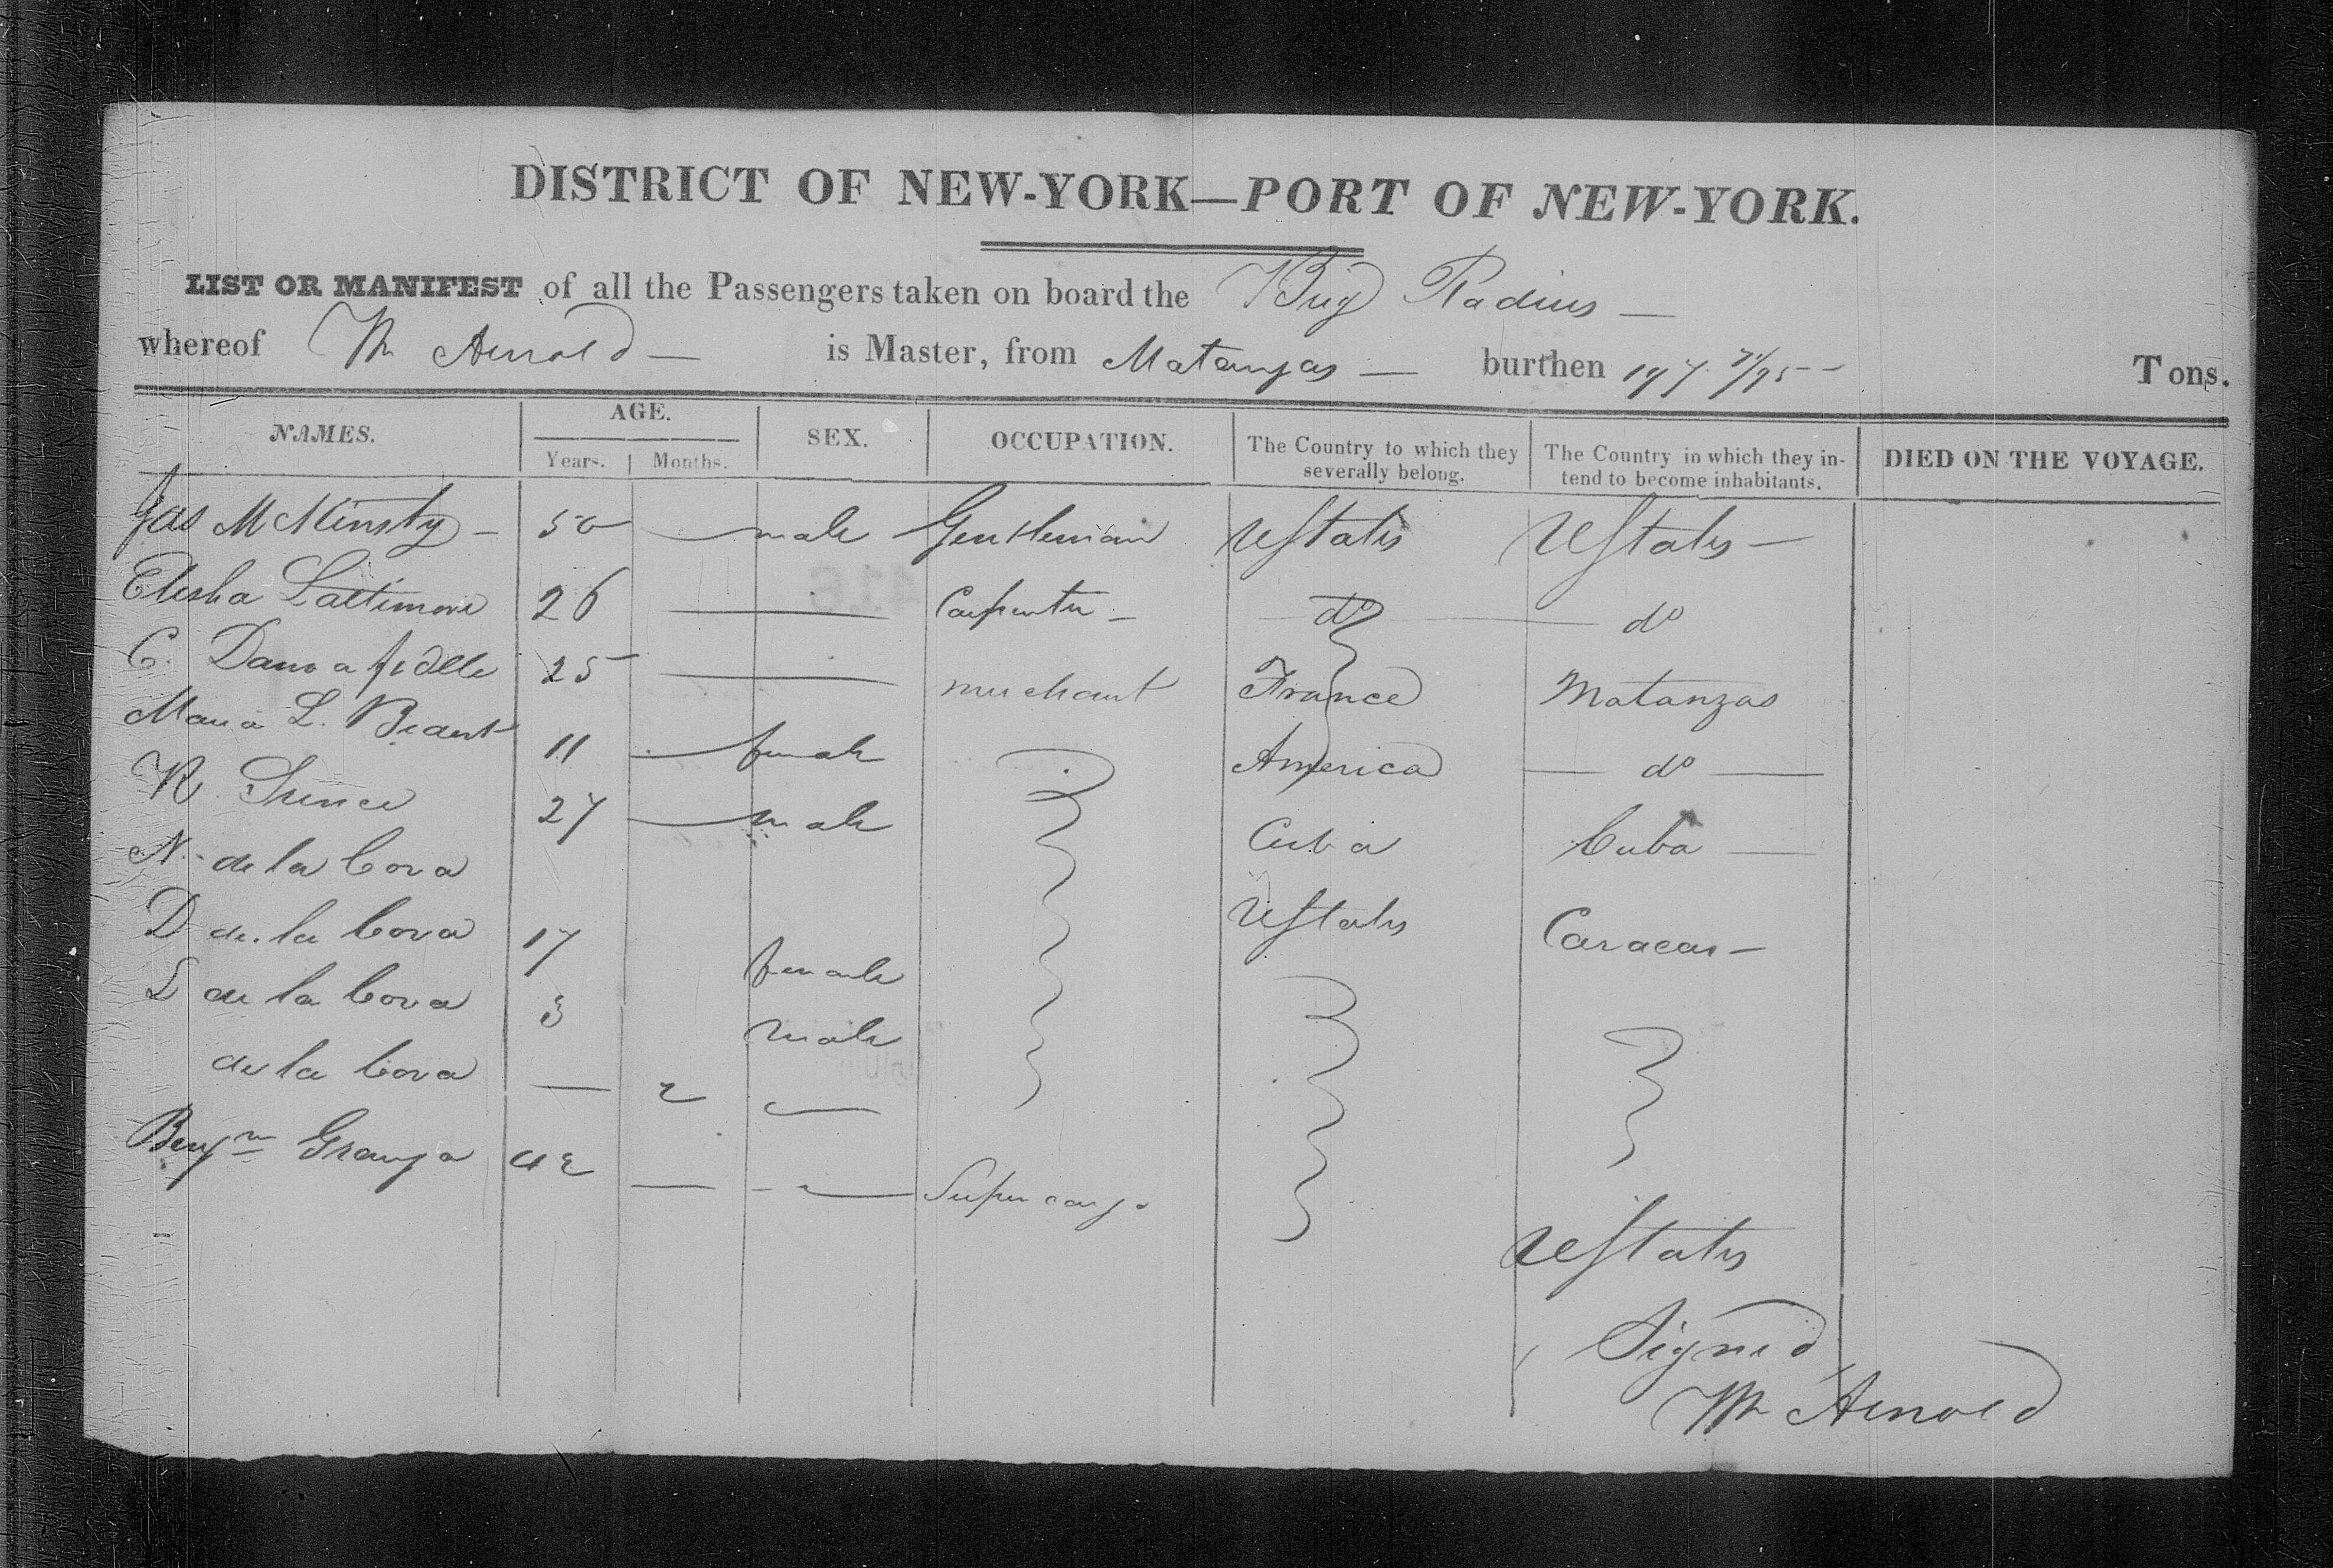 DISTRICT OF NEW-YORK—PORT OF NEW-YORK.
LIST OR MANIFEST of all the Passengers taken on board the Brig Radius —
whereof Wm Arnold — is Master, from Matanzas — burthen 197 71/95 Tons.
NAMES. AGE. SEX. OCCUPATION. The Country to which they severally belong. The Country in which they intend to become inhabitants. DIED ON THE VOYAGE.
Years. Months.
Jas McKinsty — 50 — male Gentleman UStates UStates —
Elisha Lattimore 26 — Carpenter — do do
C. 25 — merchant France Matanzas
Maria L. 11 — female America — do —
27 — male Cuba Cuba —
N. de la Cova UStates Caracas —
D de la Cova 17 female
L de la Cova 3 male
de la Cova — 2 —
Benjn 42 — — Supercargo
UStates
Signed
Wm Arnold